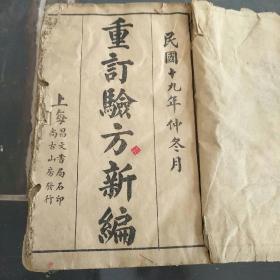 民國十九年仲冬月
重訂驗方新編
上海昌文書局石印
尚古山房發行